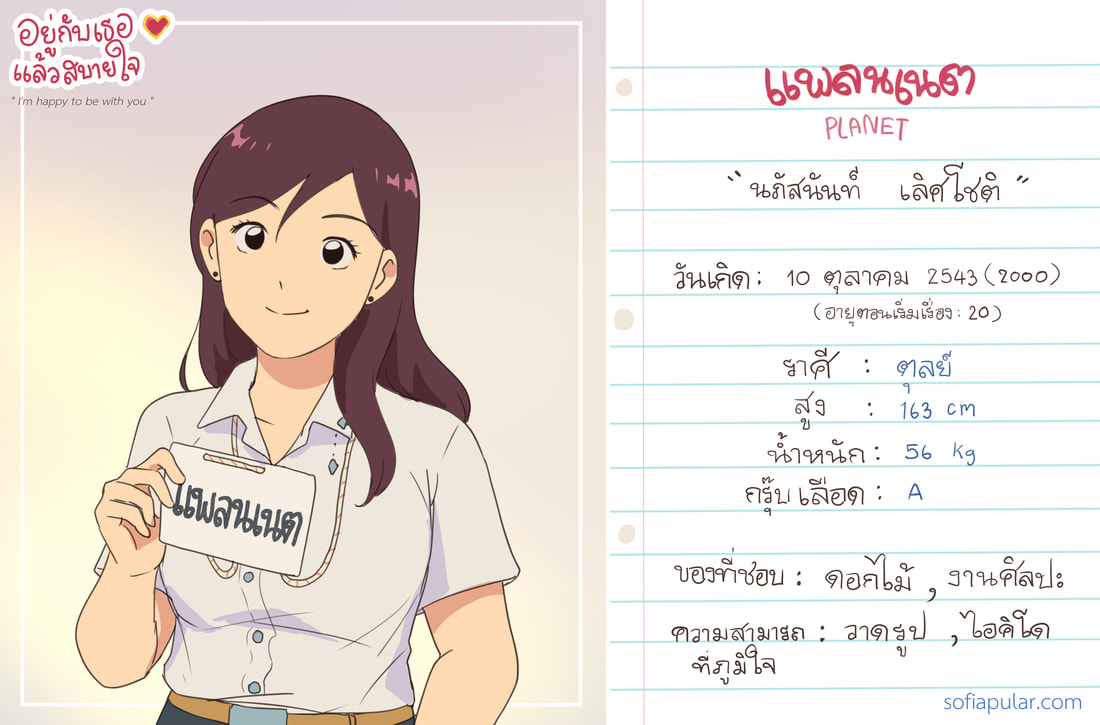 อยู่กับเธอ
แล้วสบายใจ
" I'm happy to be with you "
แพลนเนต
แพลนเนต
PLANET
“นภัสนันท์ เลิศโชติ”
วันเกิด : 10 ตุลาคม 2543 (2000)
(อายุตอนเริ่มเรื่อง : 20)
ราศี : ตุลย์
สูง : 163 cm
น้ำหนัก : 56 kg
กรุ๊บ เลือด : A
ของที่ชอบ : ดอกไม้ , งานศิลปะ
ความสามารถ : วาดรูป , ไอคิโด
ที่ภูมิใจ
sofiapular.com